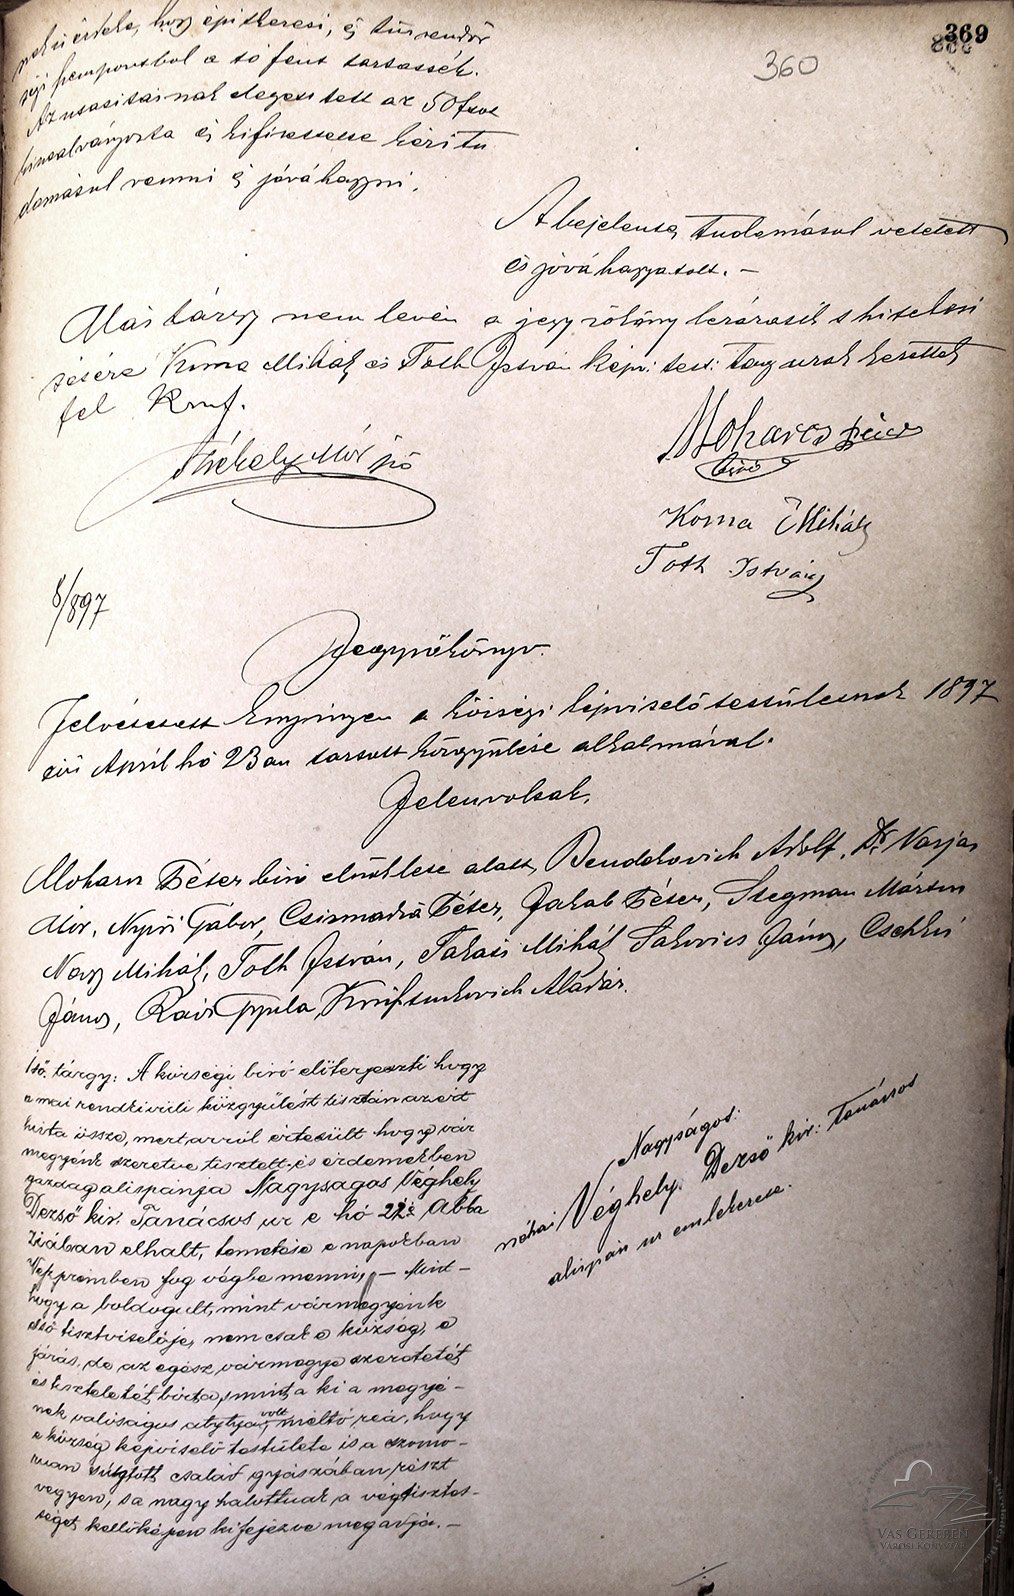 369
360
nek érdeke, hogy építkezési, és tűzrendőr
ségi szempontból a tó fent tartassék.
Az utasitásnak eleget tett az 50 frt
utalványozta és kifizettette kéri tu
domásul venni és jóváhagyni.
A bejelentés tudomásul vétetett
és jóváhagyatott. —
Más tárgy nem levén a jegyzőköny lezárását s hitelesi
tésére Koma Mihály és Toth István képv: test: tag urak kérettek
fel Kmf.
Székely Mór jző
Moharos Péter
biró
Koma Mihály
Toth István
8/897
Jegyzőkönyv.
Felvétetett Enyingen a községi képviselőtestületnek 1897
évi April hó 23 an tartott közgyűlése alkalmával.
Jelenvoltak.
Moharos Péter biró elnöklete alatt, Bendekovich Adolf, Dr. Varjas
Mór, Nyiri Gábor, Csizmadia Péter, Jakab Péter, Stegman Márton
Nagy Mihály, Toth István, Takási Mihály Takovics János, Csekkei
János, Raisz Gyula, Aladár.
1ső tárgy: A községi biró előterjeszti hogy
a mai rendkivüli közgyűlést tisztán azért
hivta össze, mert arról értesült hogy vár
megyénk szeretve tisztelt és érdemekben
gazdag alispánja Nagyságos Véghely
Dezső kir. Tanácsos ur e hó 22én Abba
ziában elhalt, temetése e napokban
Veszprémben fog végbe menni, — Mint-
hogy a boldogult, mint vármegyénk
első tisztviselője, nem csak a község, a
járás, de az egész vármegye szeretetét,
és tiszteletét birta, mint a ki a megyé-
nek valóságos atytya volt, méltó reá, hogy
a község képviselő testülete is a szomo-
ruan sújtott család gyászában részt
vegyen, s a nagy halottnak a végtisztes-
séget kellőképen kifejezve megadja. —
Nagyságos:
néhai Véghely Dezső kir: tanácsos
alispán ur emlékezete.
VAS GEREBEN
VÁROSI KÖNYVTÁR